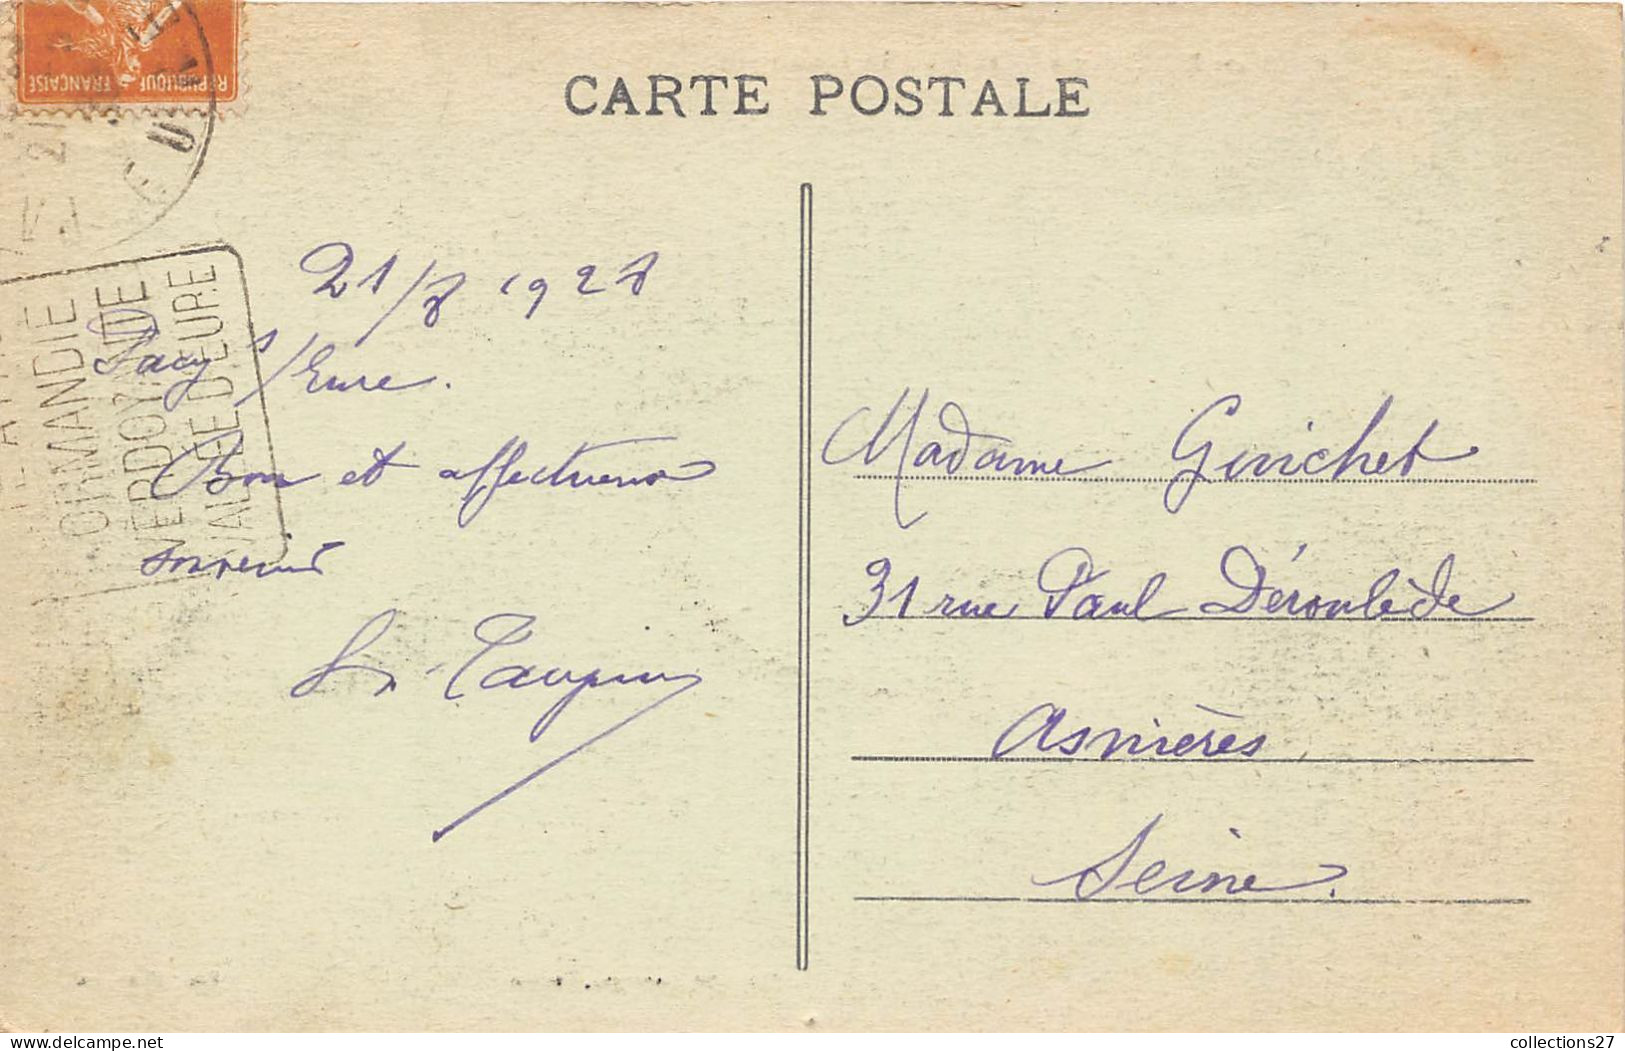 RÉPUBLIQUE FRANÇAISE
CARTE POSTALE
EURE
21
NORMANDIE
VERDOYANTE
VALLÉE D'EURE
21/8 1928
Pacy s/Eure.
Bon et affectueux
souvenir
Taupin
Madame Guichet
31 rue Paul Déroulède
Asnières
Seine.
collections27